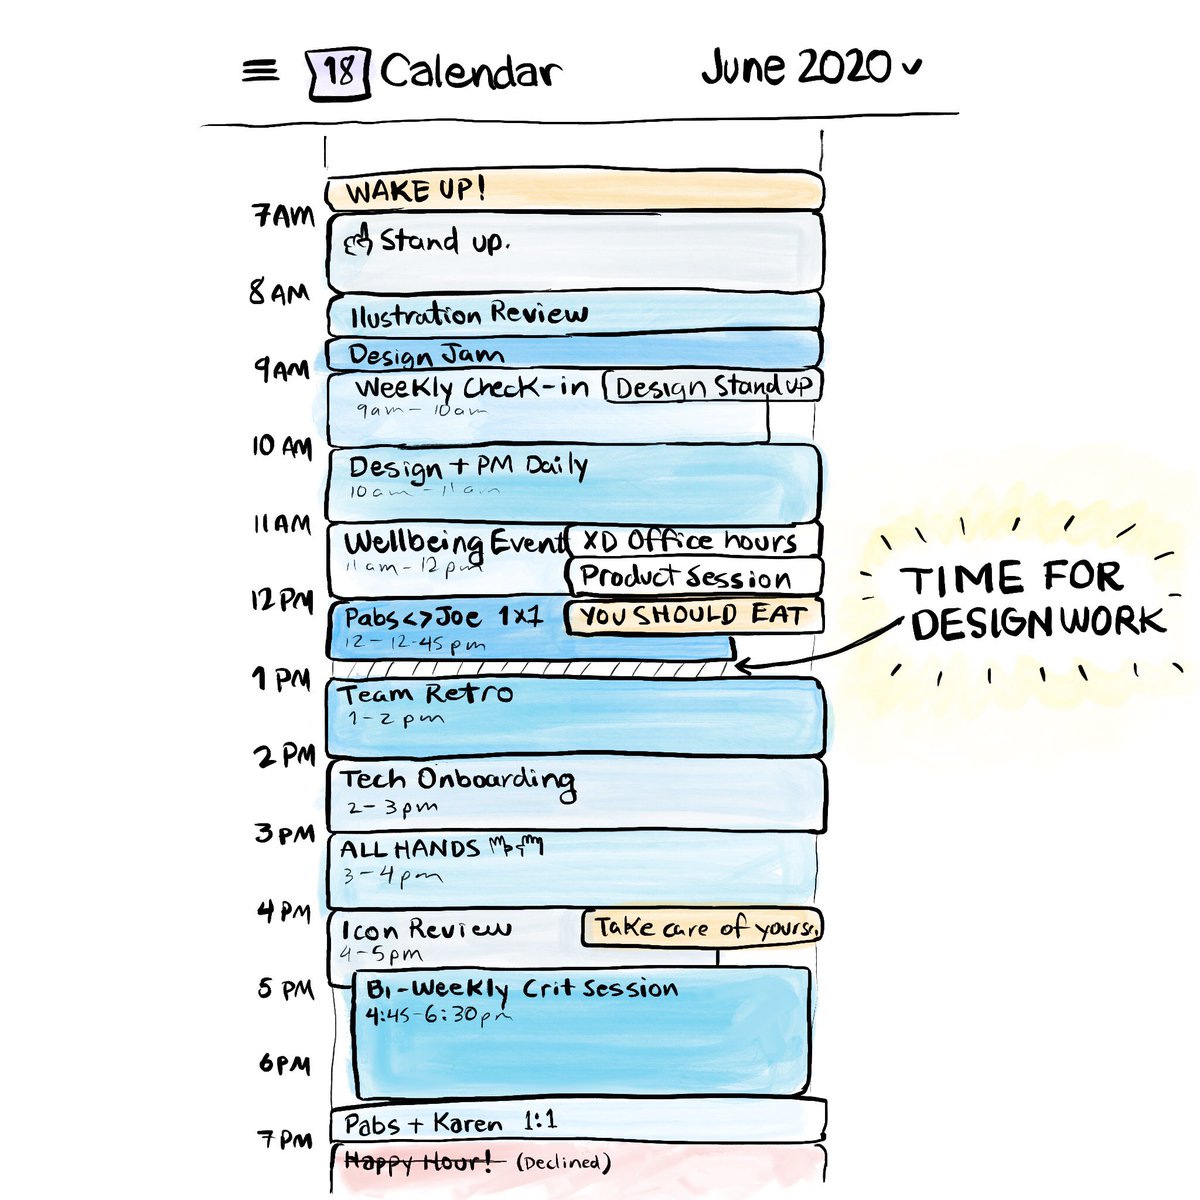 18 Calendar June 2020
WAKE UP!
7AM
Stand up.
8AM
Ilustration Review
Design Jam
9AM
Weekly Check-in Design Stand up
9am - 10am
10 AM
Design + PM Daily
10am - 11am
11AM
Wellbeing Event XD Office hours
11am - 12pm
Product Session
12PM
Pabs<>Joe 1x1 YOU SHOULD EAT
12 - 12.45pm
TIME FOR
DESIGN WORK
1 PM
Team Retro
1-2pm
2 PM
Tech Onboarding
2-3pm
3PM
ALL HANDS
3-4pm
4PM
Icon Review Take care of yours
4-5pm
5 PM
Bi-Weekly Crit Session
4:45-6:30pm
6PM
Pabs + Karen 1:1
7PM
Happy Hour! (Declined)